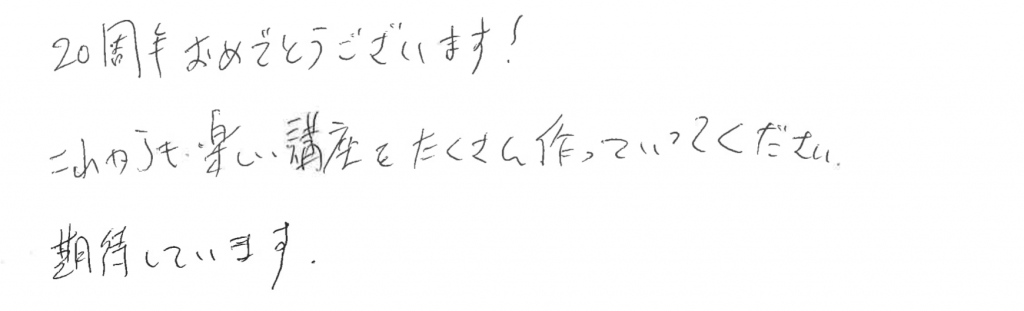 20周年おめでとうございます!
これからも楽しい講座をたくさん作っていってください.
期待しています.